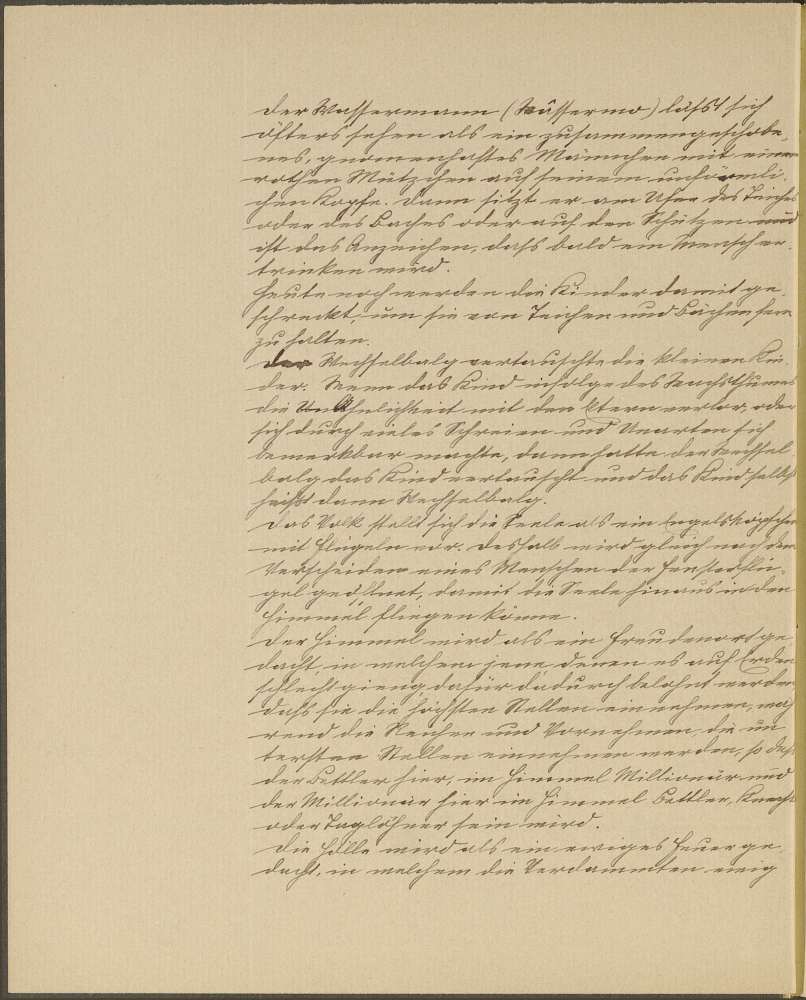 Der Wassermann (Wâssermo) läßt sich
öfters sehen als ein zusammengeschobe-
nes, gnomenhaftes Männchen mit einem
rothen Mützchen auf seinem unförmli-
chen Kopfe. Dann sitzt er am Ufer des Teiches
oder des Baches oder auf den Schützen und
ist das Anzeichen, dass bald ein Mensch er-
trinken wird.
Heute noch werden die Kinder damit ge-
schreckt, um sie von Teichen und Bächen fern
zu halten.
Der Wechselbalg vertauschte die kleinen Kin-
der. Wenn das Kind infolge des Wachsthumes
die Ähnlichkeit mit den Eltern verlor, oder
sich durch vieles Schreien und Unarten sich
bemerkbar machte, dann hatte der Wechsel-
balg das Kind vertauscht und das Kind selbst
heißt dann Wechselbalg.
Das Volk stellt sich die Seele als ein Engelsköpfchen
mit Flügeln vor. Deshalb wird gleich nach dem
Verscheiden eines Menschen der Fensterflü-
gel geöffnet, damit die Seele hinaus in den
Himmel fliegen könne.
Der Himmel wird als ein Freudenort ge-
dacht, in welchem jene denen es auf Erden
schlecht gieng, dafür dadurch belohnt werden
dass sie die höchsten Stellen einnehmen, wäh
rend die Reichen und Vornehmen die un-
tersten Stellen einnehmen werden, so dass
der Bettler hier, im Himmel Millionär und
der Millionär hier im Himmel Bettler, Knecht
oder Taglöhner sein wird.
Die Hölle wird als ein ewiges Feuer ge-
dacht, in welchem die Verdammten ewig